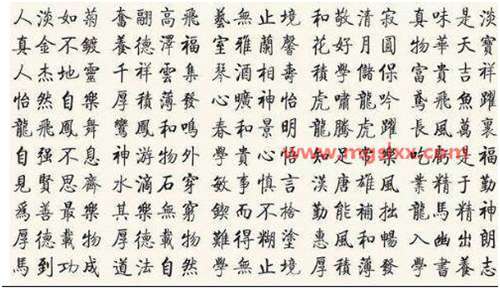 人淡如菊 奮翮高飛 藝無止境 和敬清寂 真味是淡
真金不鍍 養德澤福 室雅蘭馨 花好月圓 物華天寶
人杰地靈 千祥雲集 琴酒相壽 積學儲保 富貴吉祥
怡然自樂 厚積薄發 心曠神怡 虎嘯龍吟 鳶飛魚躍
龍飛鳳舞 鸞鳳和鳴 春和景明 龍騰虎躍 長風萬裏
自強不息 神游物外 學貴心悟 知足常樂 吃虧是福
見賢思齊 水滴石穿 敏事慎言 漢唐雄風 業精於勤
為善最樂 其樂無窮 鍥而不捨 勤能補拙 龍馬精神
厚德載物 厚德載物 難得糊塗 惠風和暢 入幽出朗
馬到功成 道法自然 學無止境 厚積薄發 學書養志
www.mgslxx.com